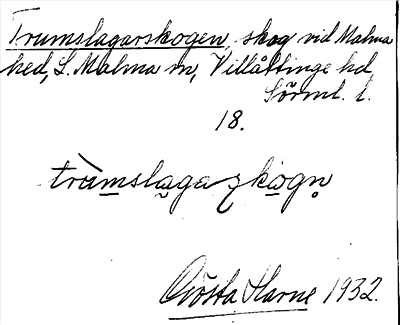 Trumslagarskogen, skog vid Malma
hed, L. Malma sn, Villåttinge hd,
Sörml. l.
18.
trùmslagaʒkogn̥
Gösta Harne 1932.